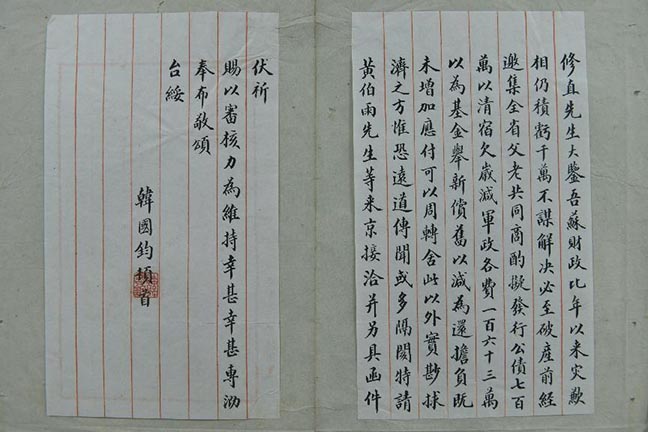 修直先生大鑒吾蘇財政比年以来灾歉
相仍積虧千萬不謀解決必至破産前經
邀集全省父老共同商酌擬發行公債七百
萬以清宿欠歲減軍政各費一百六十三萬
以為基金舉新償舊以減為還擔負既
未增加應付可以周轉舍此以外實尠捄
濟之方惟恐遠道傳聞或多隔閡特請
黃伯雨先生等来京接洽并另具函件
伏祈
賜以審核力為維持幸甚幸甚專泐
奉布敬頌
台綏
韓國鈞頓首